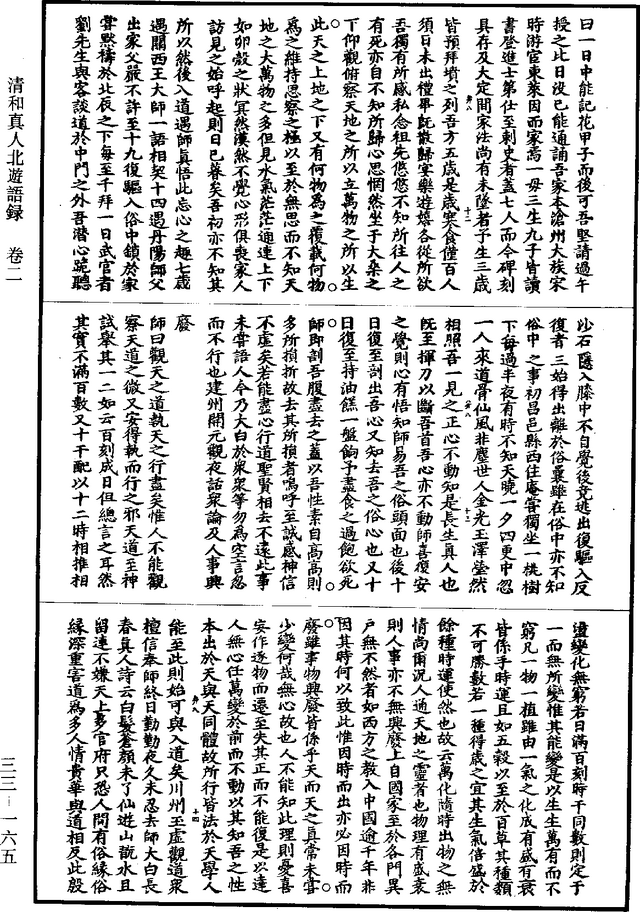 清和真人北遊語錄　卷二
曰一日中能記花甲子而後可吾堅請過午
授之比日沒已能通誦吾家本滄州大族宋
時游宦東萊因而家焉一母三生九子皆讀
書登進士第仕至刺史者蓋七人而今碑刻
具存及大定間家法尚有未墜者子生三歲
皆預拜墳之列吾方五歲是歲寒食僅百人
須日未出禮畢既散歸宴樂遊嬉各從所欲
吾獨有所感私念祖先悠悠不知所往人之
有死亦自不知所歸心思惘然坐于大桑之
下仰觀俯察天地之所以立萬物之所以生
此天之上地之下又有何物為之覆載何物
為之維持思察之極以至於無思而不知天
地之大萬物之多但見水氣茫茫通連上下
如卵殼之狀冥然漠然不覺心形俱喪家人
訪見之始呼起則日已暮矣吾初亦不知其
所以然後入道遇師真悟此忘心之趣七歲
遇關西王大師一語相契十四遇丹陽師父
出家父嚴不許至十九復驅入俗中鎖於家
嘗默禱於北辰之下每至千拜一日武官者
劉先生與客談道於中門之外吾潛心跪聽
沙石隱入膝中不自覺後竟逃出復驅入反
復者三始得出離於俗曩雖在俗中亦不知
俗中之事初昌邑縣西住庵嘗獨坐一桃樹
下每過半夜有時不知天曉一夕四更中忽
一人來道骨仙風非塵世人金光玉澤瑩然
相照吾一見之正心不動知是長生真人也
既至揮刀以斷吾首吾心亦不動師喜復安
之覺則心有悟知師易吾之俗頭面也後十
日復至剖出吾心又知去吾之俗心也又十
日復至持油餻一盤餉予盡食之過飽欲死
師即剖吾腹盡去之蓋以吾性素自高高則
多所損折故去其所損者嗚呼至誠感神信
不虛矣若能盡心行道聖賢相去不遠此事
未嘗語人今乃大白於衆衆等勿為空言忽
而不行也建州開元觀夜話衆論及人事興
廢
師曰觀天之道執天之行盡矣惟人不能觀
察天道之微又安得執而行之邪天道至神
試舉其一二如云百刻成日但總言之耳然
其實不滿百數又十干配以十二時相推相
盪變化無窮若日滿百刻時干同數則定于
一而無所變惟其能變是以生生萬有而不
窮凡一物一植雖由一氣之化成有盛有衰
皆係乎時運且如五穀以至於百草其種類
不可勝數若一種得歲之宜其生氣倍盛於
餘種時運使然也故云萬化隨時出物之無
情尚爾況人通天地之靈者也物理有盛衰
則人事亦不無興廢上自國家至於各門異
戶無不然者如西方之教入中國逾千年非
因其時何以致此惟因時而出亦必因時而
廢雖事物興廢皆係乎天而天之真常未嘗
少變何哉無心故也人不能知此理則憂喜
安作逐物而遷至失其正而不能復是以達
人無心任萬變於前而不動以其知吾之性
本出於天與天同體故所行皆法於天學人
能至此則始可與入道矣川州玉虛觀道衆
檀信奉師終日勤勤夜久未忍去師大白長
春真人詩云白髮蒼顏未了仙遊山翫水且
留連不嫌天上多官府只恐人間有俗緣俗
緣深重害道為多人情貴華與道相反此殷
三三－一六五